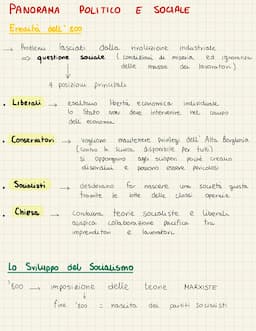 PANORAMA POLITICO E SOCIALE
Eredità dell' 800
→ Problemi lasciati dalla rivoluzione industriale
⇒ questione sociale (condizioni di miseria ed ignoranza
delle masse dei lavoratori)
4 posizioni principali
• Liberali → esaltano libertà economica individuale
lo Stato non deve intervenire nel campo
dell' economia
• Conservatori → vogliono mantenere privilegi dell' Alta Borghesia
(come la scuola disponibile per tutti)
si oppongono agli scioperi poiché creano
disordini e possono essere pericolosi
• Socialisti → desiderano far nascere una società giusta
tramite le lotte delle classi operaie
• Chiesa → condanna teorie socialiste e liberali
auspica collaborazione pacifica tra
imprenditori e lavoratori
Lo Sviluppo del Socialismo
'800 → imposizione delle teorie MARXISTE
fine '800 = nascita dei partiti socialisti